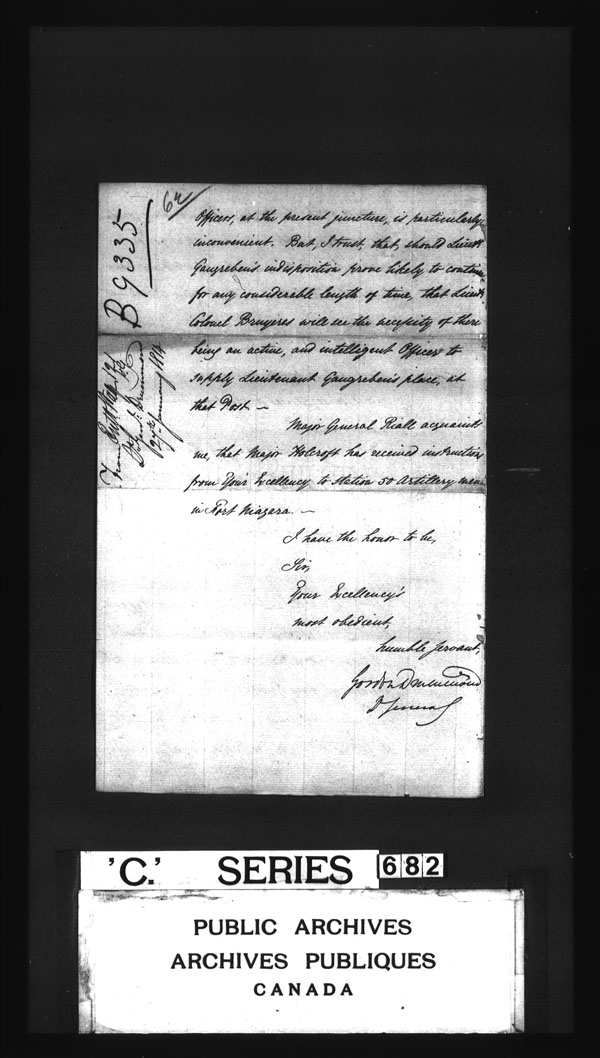 62
B 9335
Officers, at the present juncture, is particularly
inconvenient. But, I trust, that, should Lieut.
Gaugreben's indisposition prove likely to continue
for any considerable length of time, that Lieut.
Colonel Bruyeres will see the necessity of there
being an active, and intelligent Officer to
supply Lieutenant Gaugreben's place, at
that Post —
Major General Riall acquaints
me, that Major Holcroft has received instructions
from Your Excellency to station 50 Artillery men
in Fort Niagara. —
I have the honor to be,
Sir,
Your Excellency's
most obedient,
humble servant,
Gordon Drummond
Lt General
From
Drummond
January 1814
'C.' SERIES 682
PUBLIC ARCHIVES
ARCHIVES PUBLIQUES
CANADA